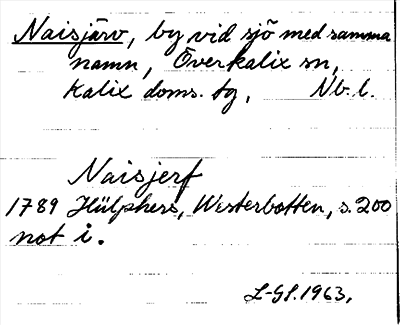 Naisjärv, by vid sjö med samma
namn, Överkalix sn,
Kalix doms. tg, Nb. l.
Naisjerf
1789 Hülphers, Westerbotten, s. 200
not i.
L-Gf. 1963,